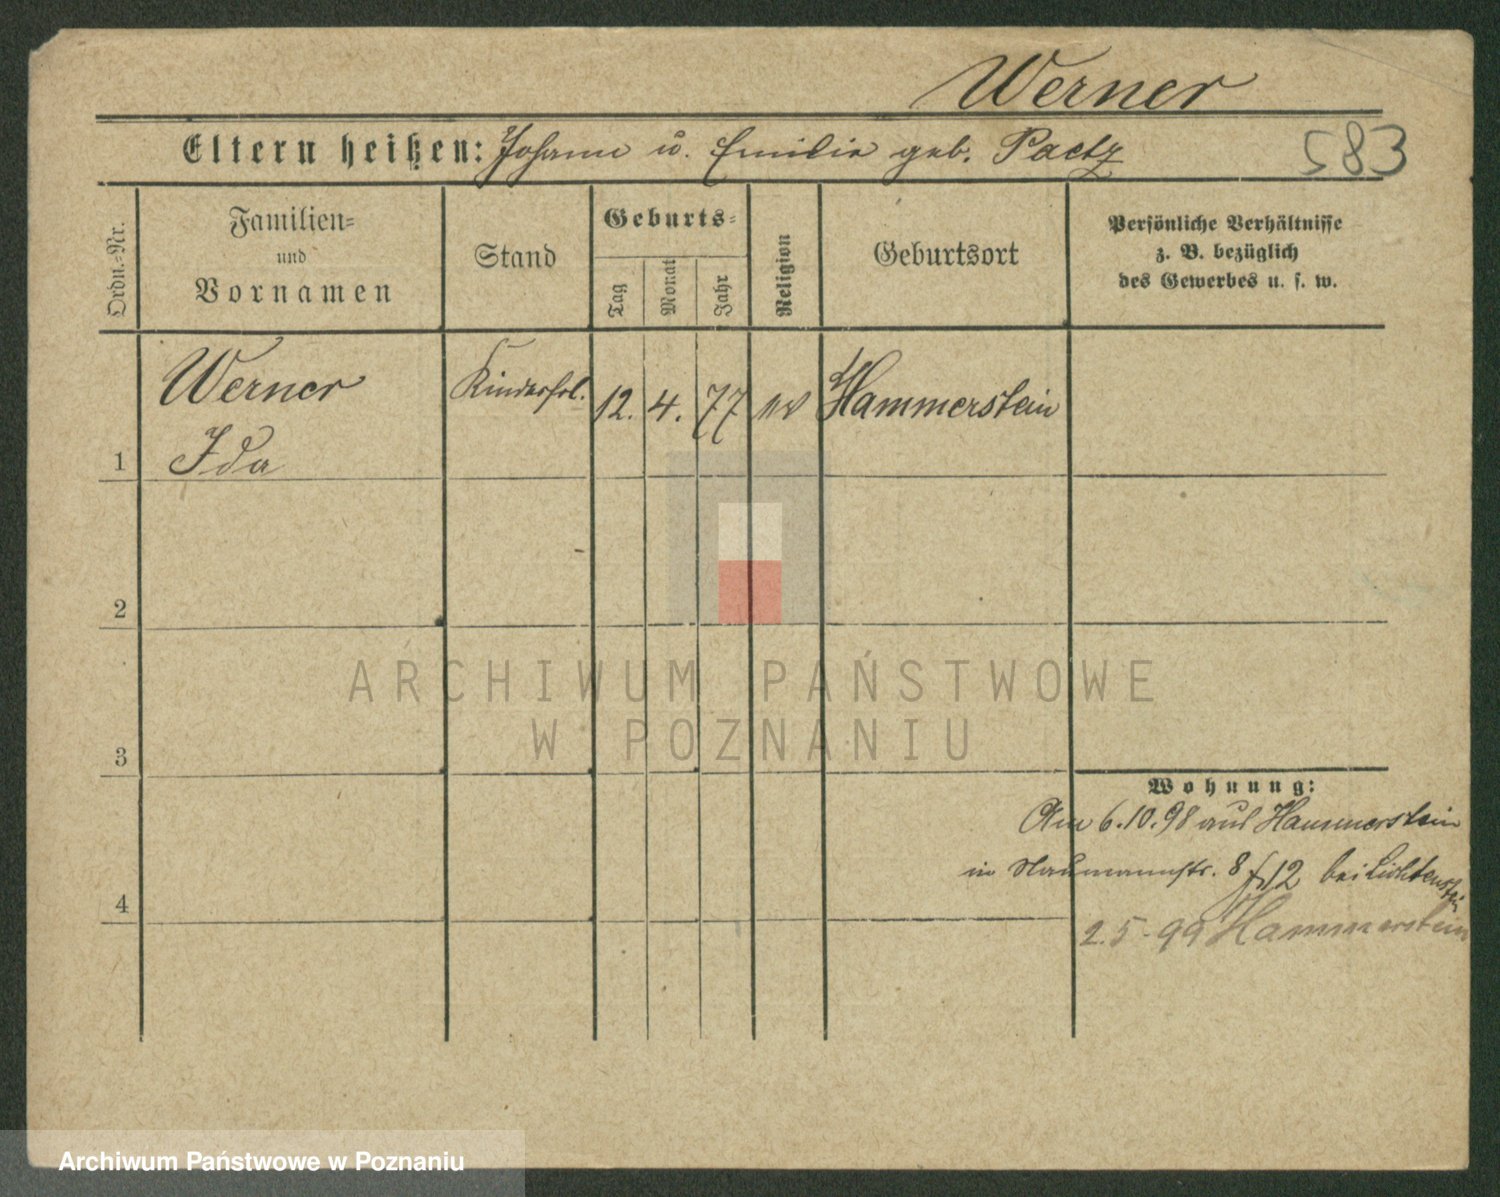 Werner
Eltern heißen: Johann u. Emilie geb. Paetz
583
Ordn.-Nr.
Familien-
und
Vornamen
Stand
Geburts-
Tag
Monat
Jahr
Religion
Geburtsort
Persönliche Verhältnisse
z. B. bezüglich
des Gewerbes u. s. w.
Werner Kinderfrl. 12. 4. 77 ev Hammerstein
1 Ida
2
3
ARCHIWUM PAŃSTWOWE
W POZNANIU
Wohnung:
Am 6.10.98 aus Hammerstein
in Naumannstr. 8 12 bei Lichtenstein
4
2.5-99 Hammerstein
Archiwum Państwowe w Poznaniu